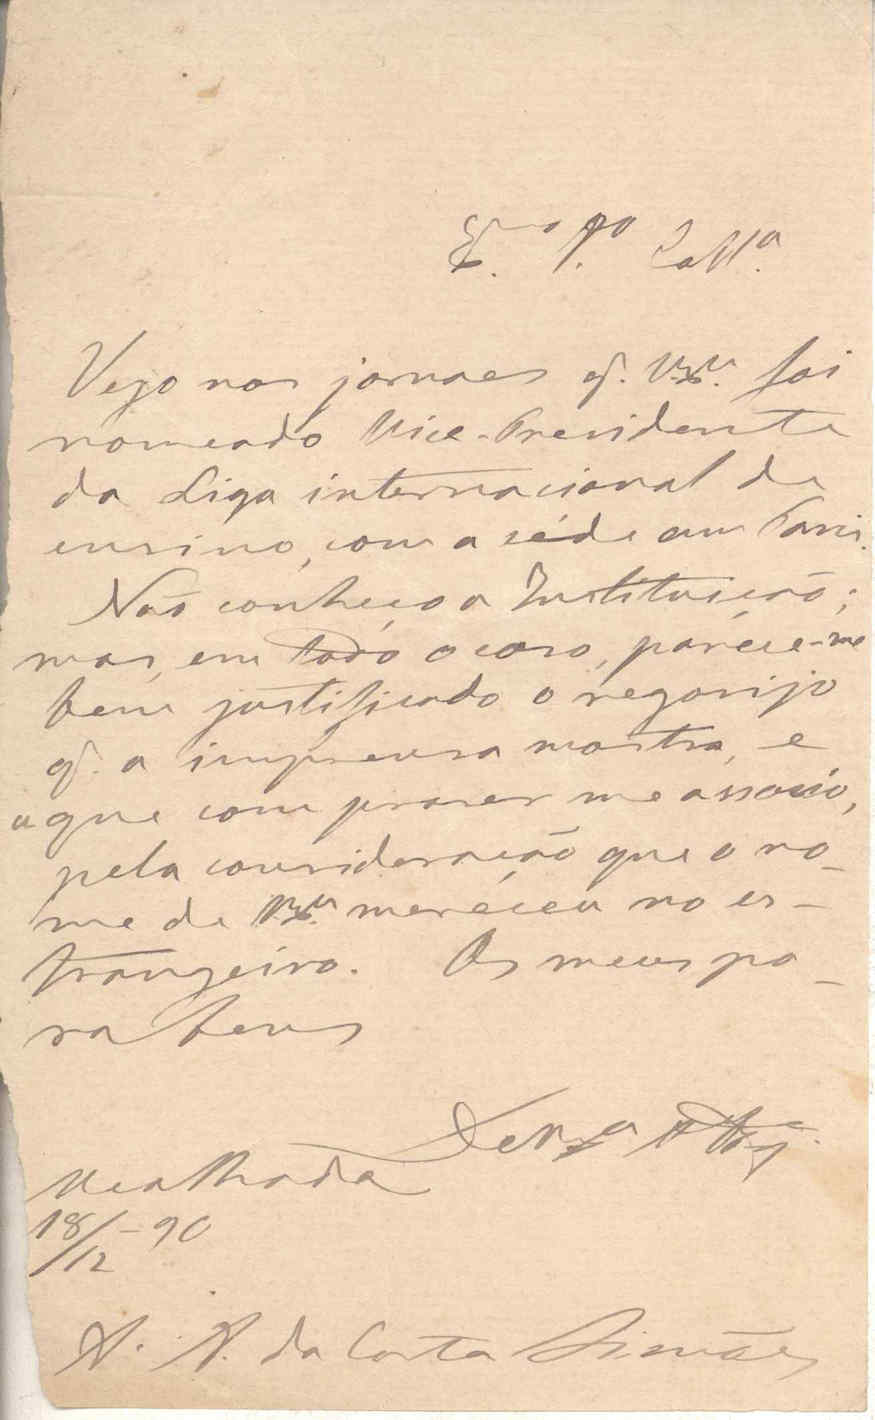 Vejo nos jornaes q. V. Ex.ª foi
nomeado Vice-Presidente
da Liga internacional de
ensino, com a séde em Paris.
Não conheço a Instituição;
mas, em todo o caso, paréce-me
bem justificado o regosijo
q. a imprensa mostra, e
a que com praser me associo,
pela consideração que o no-
me de V. Ex.ª meréceu no es-
trangeiro. Os meus pa-
rabens
De V. Ex.ª
Mealhada
18/12-90
A. A. da Costa Simões